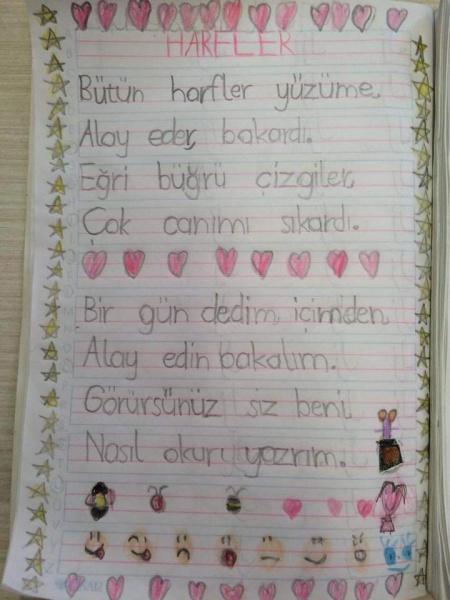 HARFLER
Bütün harfler yüzüme,
Alay eder, bakardı.
Eğri büğrü çizgiler,
Çok canımı sıkardı.
Bir gün dedim içimden,
Alay edin bakalım.
Görürsünüz siz beni,
Nasıl okur yazrım.